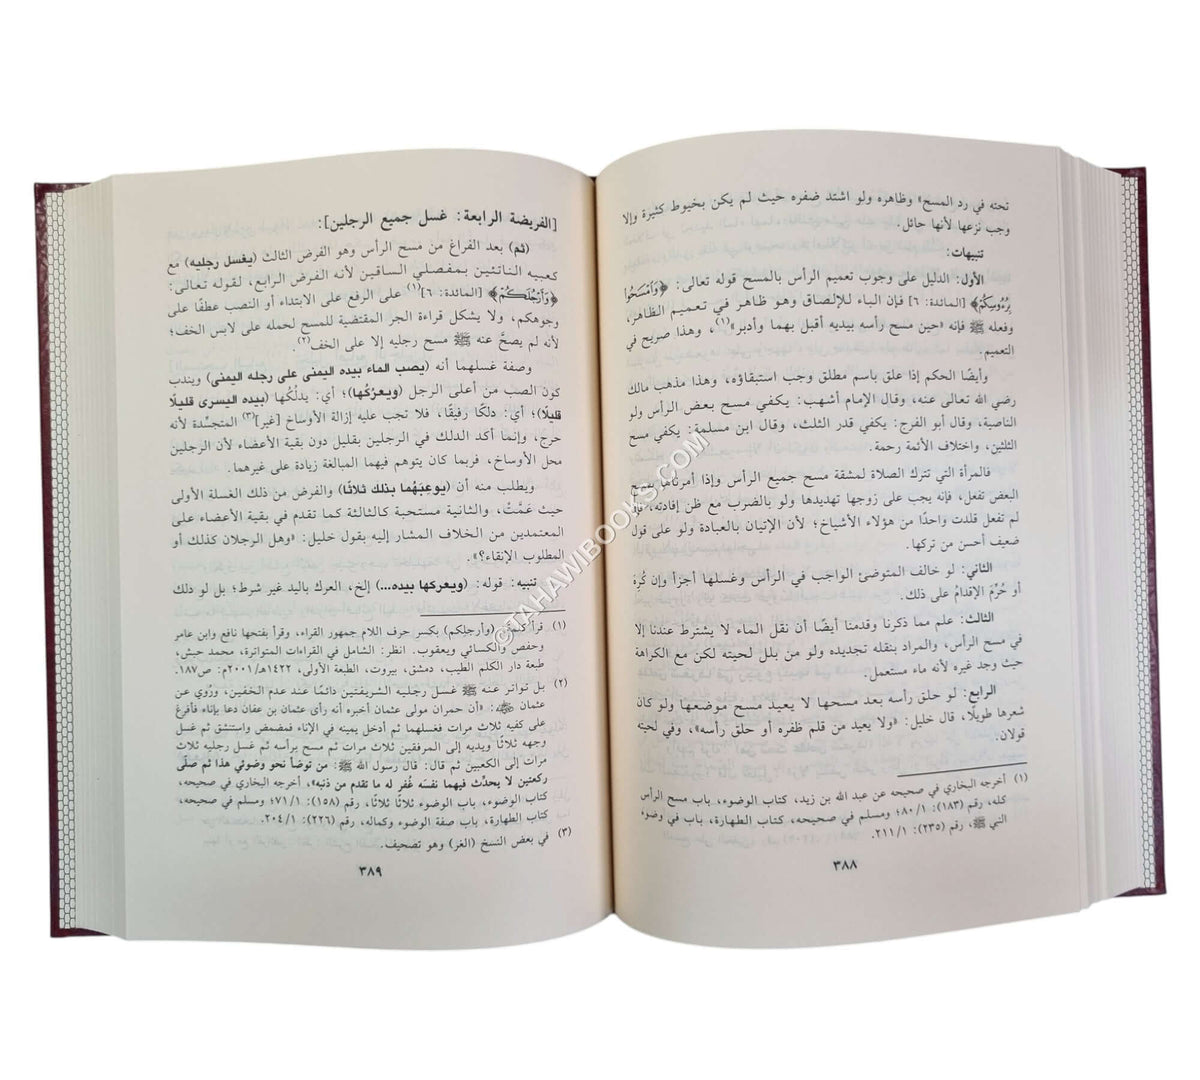 تحته في رد المسح» وظاهره ولو اشتد ضفره حيث لم يكن بخيوط كثيرة وإلا
وجب نزعها لأنها حائل.
تنبيهات:
الأول: الدليل على وجوب تعميم الرأس بالمسح قوله تعالى: ﴿وَٱمۡسَحُواْ
بِرُءُوسِكُمۡ﴾ [المائدة: ٦] فإن الباء للإلصاق وهو ظاهر في تعميم الظاهر،
وفعله ﷺ فإنه «حين مسح رأسه بيديه أقبل بهما وأدبر»(١)، وهذا صريح في
التعميم.
وأيضًا الحكم إذا علق باسم مطلق وجب استبقاؤه، وهذا مذهب مالك
رضي الله تعالى عنه، وقال الإمام أشهب: يكفي مسح بعض الرأس ولو
الناصية، وقال أبو الفرج: يكفي قدر الثلث، وقال ابن مسلمة: يكفي مسح
الثلثين، واختلاف الأئمة رحمة.
فالمرأة التي تترك الصلاة لمشقة مسح جميع الرأس وإذا أمرناها بمسح
البعض تفعل، فإنه يجب على زوجها تهديدها ولو بالضرب مع ظن إفادته، فإن
لم تفعل قلدت واحدًا من هؤلاء الأشياخ؛ لأن الإتيان بالعبادة ولو على قول
ضعيف أحسن من تركها.
الثاني: لو خالف المتوضئ الواجب في الرأس وغسلها أجزأ وإن كُرِهَ
أو حُرِّمَ الإقدامُ على ذلك.
الثالث: علم مما ذكرنا وقدمنا أيضًا أن نقل الماء لا يشترط عندنا إلا
في مسح الرأس، والمراد بنقله تجديده ولو من بلل لحيته لكن مع الكراهة
حيث وجد غيره لأنه ماء مستعمل.
الرابع: لو حلق رأسه بعد مسحها لا يعيد مسح موضعها ولو كان
شعرها طويلًا، قال خليل: «ولا يعيد من قلم ظفره أو حلق رأسه»، وفي لحيته
قولان.
(١) أخرجه البخاري في صحيحه عن عبد الله بن زيد، كتاب الوضوء، باب مسح الرأس
كله، رقم (١٨٣): ٨٠/١؛ ومسلم في صحيحه، كتاب الطهارة، باب في وضوء
النبي ﷺ، رقم (٢٣٥): ٢١١/١.
٣٨٨
[الفريضة الرابعة: غسل جميع الرجلين]:
(ثم) بعد الفراغ من مسح الرأس وهو الفرض الثالث (يغسل رجليه) مع
كعبيه الناتئين بمفصلي الساقين لأنه الفرض الرابع، لقوله تعالى:
﴿وَأَرۡجُلَكُمۡ﴾ [المائدة: ٦](١) على الرفع على الابتداء أو النصب عطفًا على
وجوهكم، ولا يشكل قراءة الجر المقتضية للمسح لحمله على لابس الخف؛
لأنه لم يصحَّ عنه ﷺ مسح رجليه إلا على الخف(٢).
وصفة غسلهما أنه (يصب الماء بيده اليمنى على رجله اليمنى) ويندب
كون الصب من أعلى الرجل (ويعرُكها)؛ أي: يدلُكها (بيده اليسرى قليلًا
قليلًا)؛ أي: دلكًا رفيقًا، فلا تجب عليه إزالة الأوساخ [غير](٣) المتجسِّدة لأنه
حرج، وإنما أكد الدلك في الرجلين بقليل دون بقية الأعضاء لأن الرجلين
محل الأوساخ، فربما كان يتوهم فيهما المبالغة زيادة على غيرهما.
ويطلب منه أن (يوعِبَهُما بذلك ثلاثًا) والفرض من ذلك الغسلة الأولى
حيث عَمَّتْ، والثانية مستحبة كالثالثة كما تقدم في بقية الأعضاء على
المعتمدين من الخلاف المشار إليه بقول خليل: «وهل الرجلان كذلك أو
المطلوب الإنقاء؟».
تنبيه: قوله: (ويعركها بيده...) إلخ، العرك باليد غير شرط؛ بل لو دلك
(١) قرأ كلمة: (وأرجلِكم) بكسر حرف اللام جمهور القراء، وقرأ بفتحها نافع وابن عامر
وحفص والكسائي ويعقوب. انظر: الشامل في القراءات المتواترة، محمد حبش،
طبعة دار الكلم الطيب، دمشق، بيروت، الطبعة الأولى، ١٤٢٢هـ/٢٠٠١م: ص١٨٧.
(٢) بل تواتر عنه ﷺ غسل رجليه الشريفتين دائمًا عند عدم الخفين، ورُوي عن
عثمان رضي الله عنه: «أن حمران مولى عثمان أخبره أنه رأى عثمان بن عفان دعا بإناء فأفرغ
على كفيه ثلاث مرات فغسلهما ثم أدخل يمينه في الإناء فمضمض واستنشق ثم غسل
وجهه ثلاثًا ويديه إلى المرفقين ثلاث مرات ثم مسح برأسه ثم غسل رجليه ثلاث
مرات إلى الكعبين ثم قال: قال رسول الله ﷺ: من توضأ نحو وضوئي هذا ثم صلّى
ركعتين لا يحدِّث فيهما نفسَه غُفر له ما تقدم من ذنبه»، أخرجه البخاري في صحيحه،
كتاب الوضوء، باب الوضوء ثلاثًا ثلاثًا، رقم (١٥٨): ٧١/١؛ ومسلم في صحيحه،
كتاب الطهارة، باب صفة الوضوء وكماله، رقم (٢٢٦): ٢٠٤/١.
(٣) في بعض النسخ (الغر) وهو تصحيف.
٣٨٩
©TAHAWIBOOKS.COM